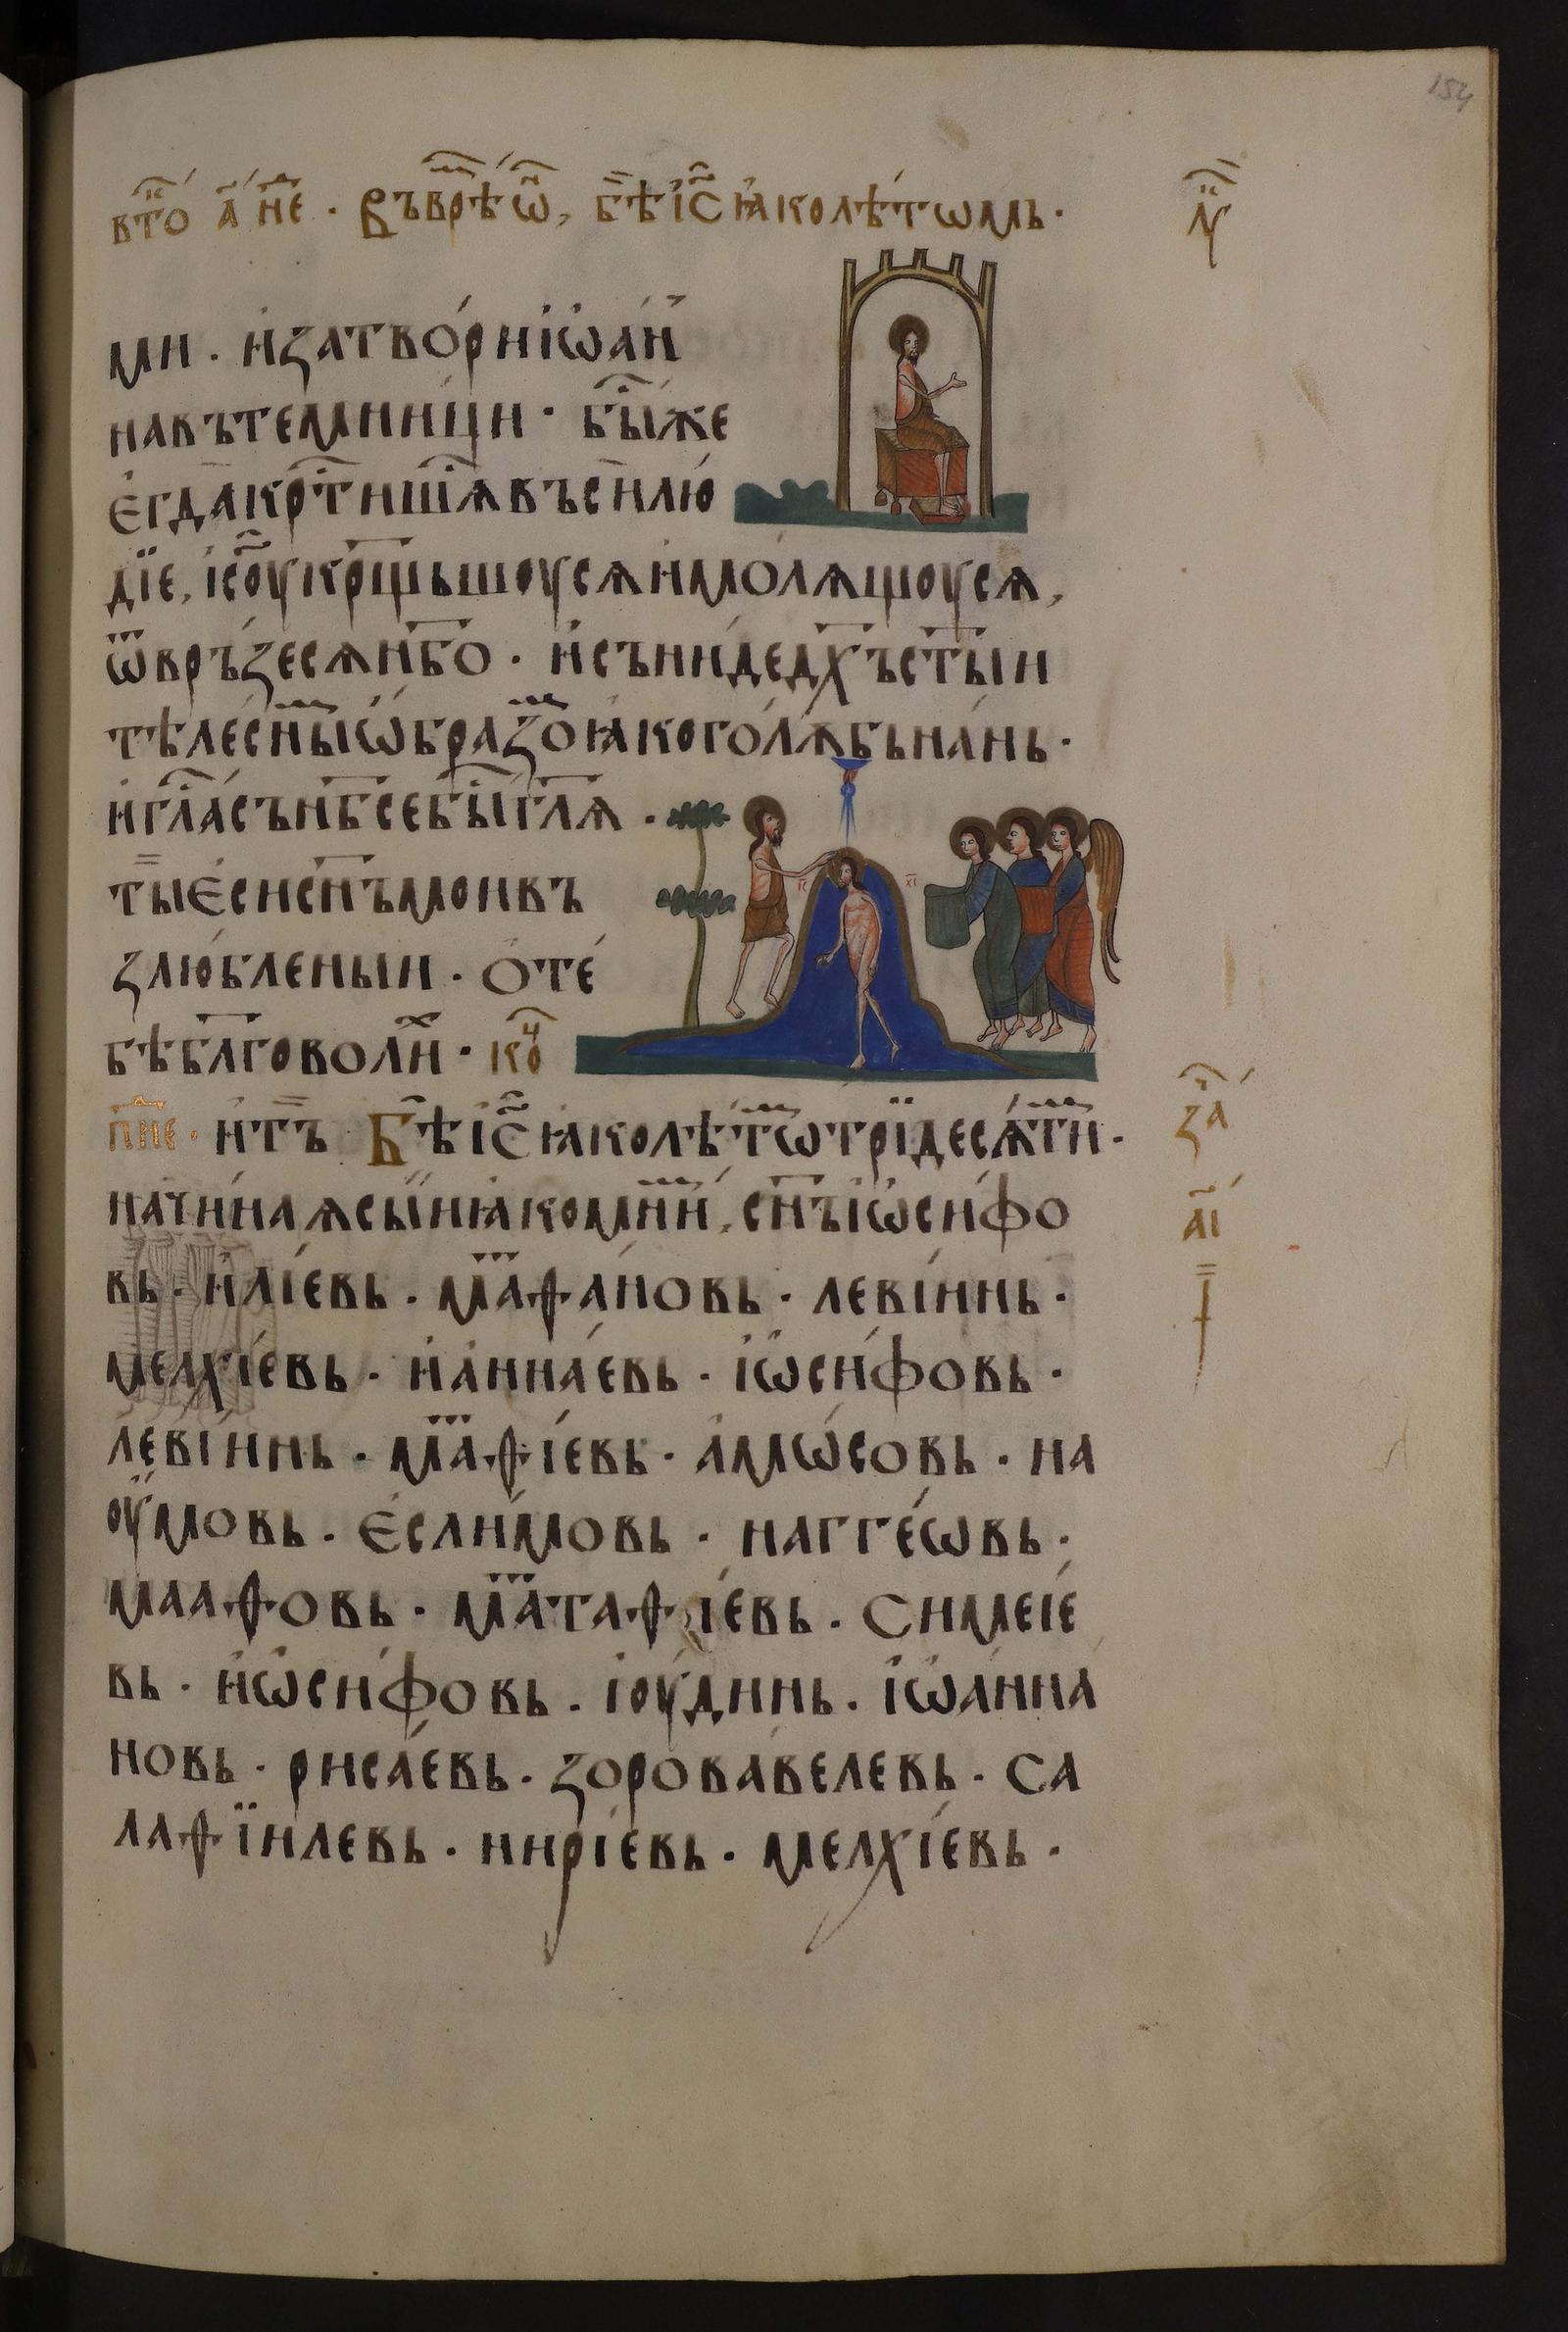 154
вт҃о а҃ не҃ · Въврѣ҃ ѡ҃, б҃ѣ і҆с҃ ꙗ҆колѣ́тѡмь ·
ми · и҆затво́риі҆ѡа́н
навътемни́ци · бы҃же
є҆гдакрт҃ишѧ҃въс̑илю́
дїе, і҆с҃оукрщ҃ьшоусѧи҆мо́лѧщоусѧ,
ѿвръ́зесѧнб҃о · и҆съни́дедх҃ъст҃ыи
тѣле́сны̑ѡ҆́бразо̑ꙗ҆кого́лѫбьна́нь ·
и҆гла́сънб҃себы҃гл҃ѧ ·
ты̑є҆́сисн҃ъмоивъ
злю́бленыи · ѻ҆те́
бѣбл҃говоли҃ · ко҃ч
пн҃е · и҆т҃ъ Б҃ѣ і҆с҃ ꙗ҆колѣ́тѡ̑трїдесѧ́ти̑ ·
на́чи́наѧсы́иꙗ҆комни̑, сн҃ъі҆ѡси́фо
вь · и҆лі́евь · маⷮѳа́новь · леві́инь ·
мелхі́евь · и҆а҆нна́евь · і҆ѡси́фовь ·
леві́инь · маⷮѳі́евь · а҆мѡ́совь · на
оу́мовь · є҆сли́мовь · нагге́ѡвь ·
мааѳовь · маⷮтаѳі́евь · симеіе́
вь · и҆ѡси́фовь · і҆оу́динь · і҆ѡа́нна
новь · риса́евь · зоровавелевь · са
лаѳїилевь · нирі́евь · мелхі́евь ·
за҃
а҃і